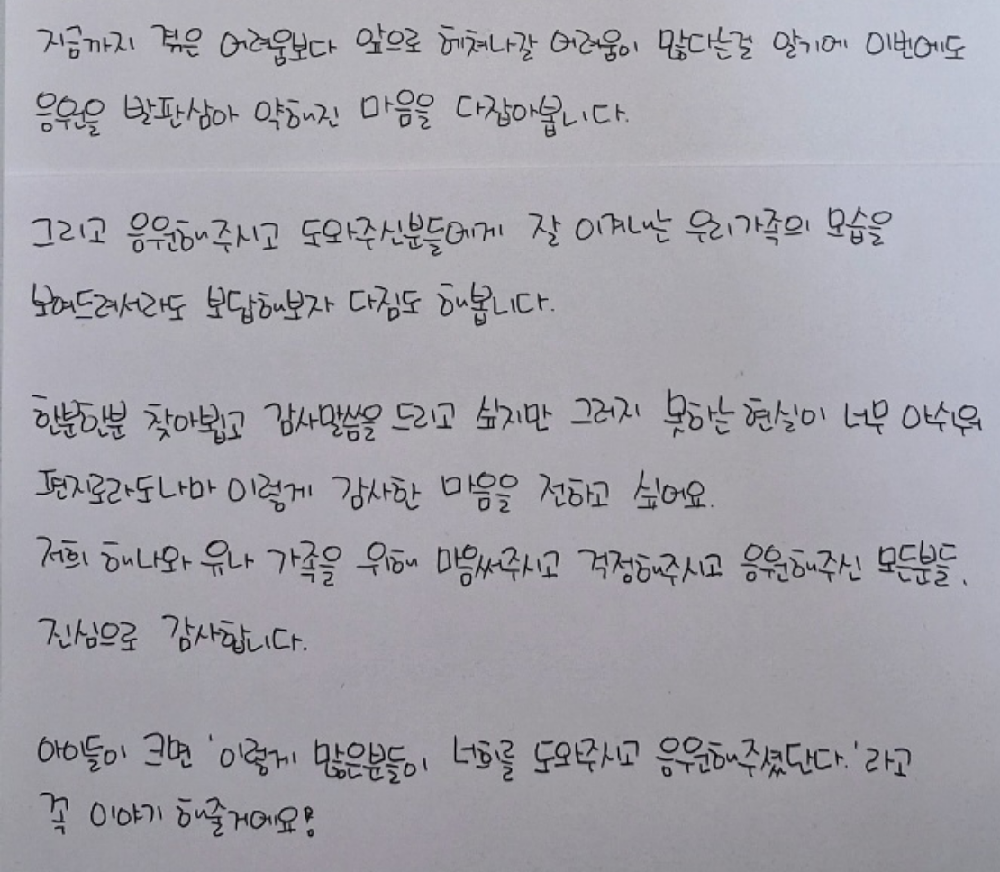 지금까지 겪은 어려움보다 앞으로 헤쳐나갈 어려움이 많다는걸 알기에 이번에도
응원을 발판삼아 약해진 마음을 다잡아봅니다.
그리고 응원해주시고 도와주신분들에게 잘 이겨내는 우리가족의 모습을
보여드려서라도 보답해보자 다짐도 해봅니다.
한분한분 찾아뵙고 감사말씀을 드리고 싶지만 그러지 못하는 현실이 너무 아쉬워
편지로라도나마 이렇게 감사한 마음을 전하고 싶어요.
저희 해나와 유나 가족을 위해 마음써주시고 걱정해주시고 응원해주신 모든분들,
진심으로 감사합니다.
아이들이 크면 '이렇게 많은분들이 너희를 도와주시고 응원해주셨단다.'라고
꼭 이야기 해줄거에요!